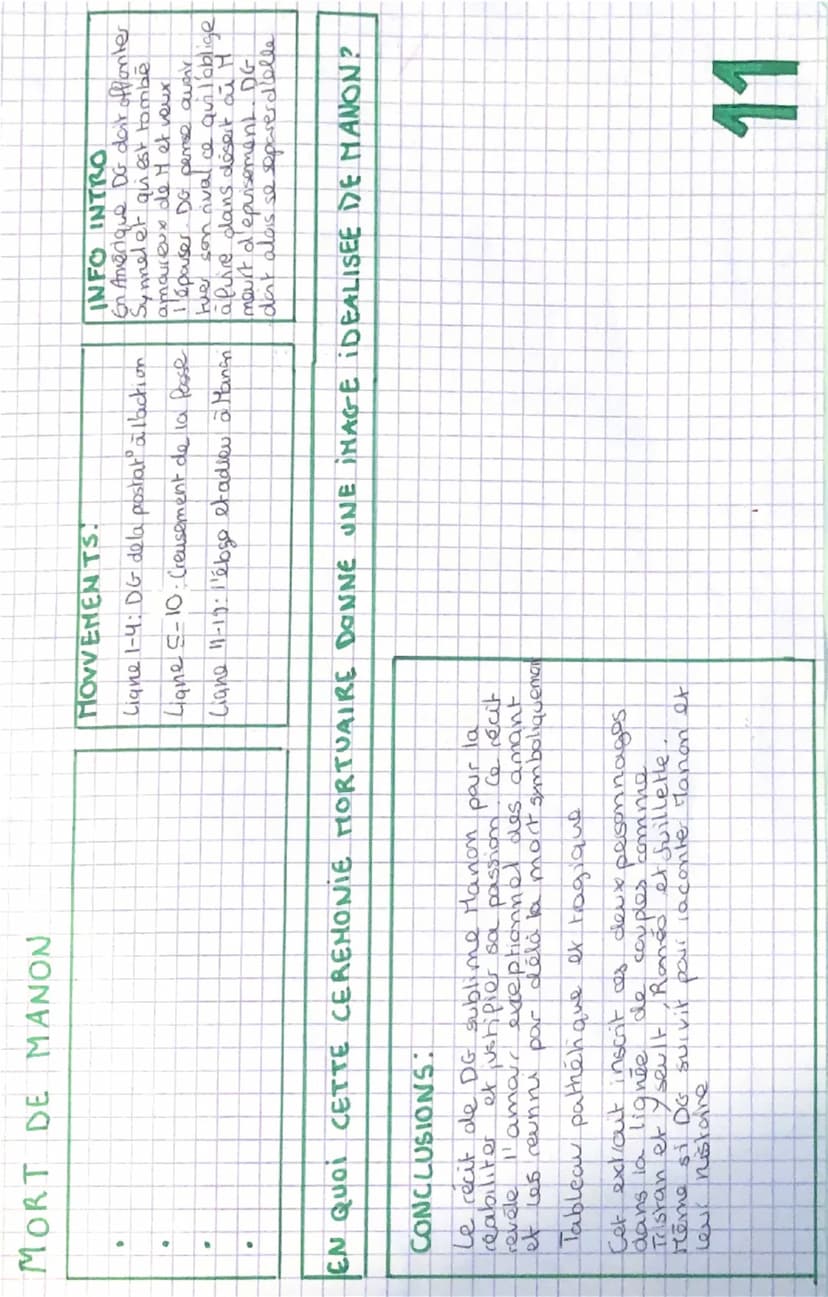 MORT DE MANON
MOUVEMENTS:
Ligne 1-4: DG de la postrat° à l'action
Ligne 5-10: Creusement de la fosse
Ligne 11-17: l'éloge et adieu à Manon
INFO INTRO
En Amérique DG doit affronter
Synnelet qui est tombé
amoureux de M et veux
l'épouser. DG pense avoir
tuer son rival ce qui l'oblige
à fuire dans désert où M
meurt d'épuisement. DG
doit alors se séparer d'elle
EN QUOI CETTE CEREMONIE MORTUAIRE DONNE UNE IMAGE IDEALISEE DE MANON?
CONCLUSIONS:
Le récit de DG sublime Manon pour la
réabiliter et justifier sa passion. Ce récit
révèle l'amour exceptionnel des amant
et les reunni par délà la mort symboliquement
Tableau pathétique et tragique
Cet extrait inscrit ces deux personnages
dans la lignée de couples comme
Tristan et Yseult, Roméo et Juillette.
Même si DG suivit pour raconter Manon et
leur histoire
11